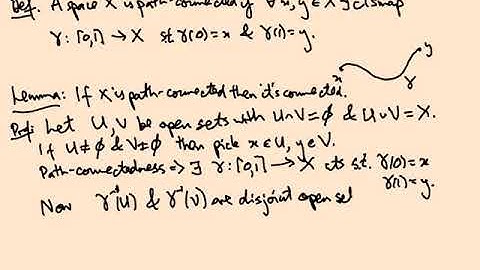 Def. A space X is path-connected if ∀ x,y ∈ X ∃ cts map
γ: [0,1] → X s.t. γ(0)=x & γ(1)=y.
y
x
γ
Lemma: If X is path-connected then it's connected.
Proof: Let U,V be open sets with U∩V=φ & U∪V=X.
If U≠φ & V≠φ then pick x∈U, y∈V.
Path-connectedness => ∃ γ: [0,1] → X cts s.t. γ(0)=x
γ(1)=y.
Now γ⁻¹(U) & γ⁻¹(V) are disjoint open set